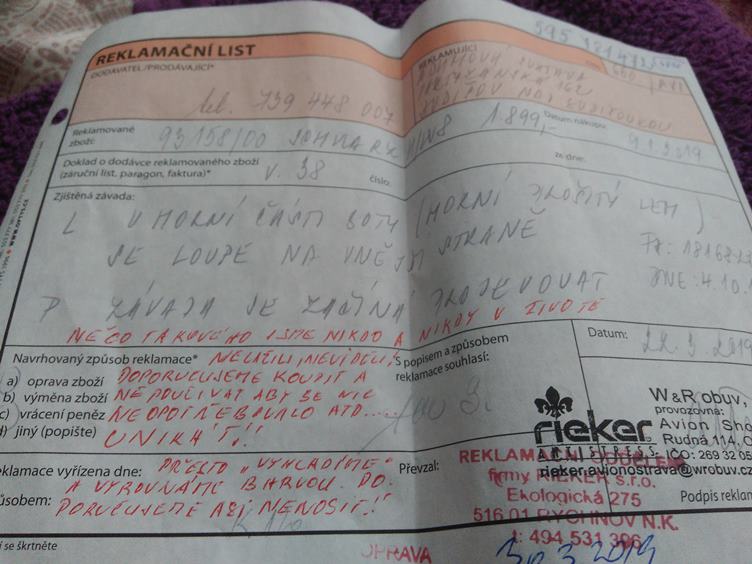 595 181 473
REKLAMAČNÍ LIST
DODAVATEL/PRODÁVAJÍCÍ*
REKLAMUJÍCÍ
tel. 739 448 007
Datum nákupu
Reklamované
zboží:
93158/00 1.899,- 9.1.2019
Doklad o dodávce reklamovaného zboží
(záruční list, paragon, faktura)*
v. 38
číslo:
ze dne:
Zjištěná závada:
L V HORNÍ ČÁSTI BOTY (HORNÍ LEM)
SE LOUPE NA VNĚJŠÍ STRANĚ
DNE: 4.10.
P ZÁVADA SE ZAČÍNÁ PROJEVOVAT
NĚČO TAKOVÉHO JSME NIKDO A NIKDY V ŽIVOTĚ
NEŘEŠILI, NEVIDĚLI,
Navrhovaný způsob reklamace*
a) oprava zboží
b) výměna zboží
c) vrácení peněz
d) jiný (popište)
DOPORUČUJEME KOUPIT A
NEPOUŽÍVAT ABY SE NIC
NEOPOTŘEBOVALO ATD....
UNIKÁT!!
S popisem a způsobem
reklamace souhlasí:
Datum:
22.3.2019
W&R obuv,
provozovna:
Avion Sho
Rudná 114, O
IČO: 269 32 05
rieker
rieker.avionostrava@wrobuv.cz
eklamace vyřízena dne:
PŘESTO „VYHLADÍME"
A VYROVNÁME BARVOU. DO-
PORUČUJEME ASI NENOSIT!!
působem:
Převzal:
firmy RIEKER s.r.o.
Ekologická 275
516 01 RYCHNOV N.K.
t: 494 531 396
Podpis rekla
í se škrtněte
OPRAVA